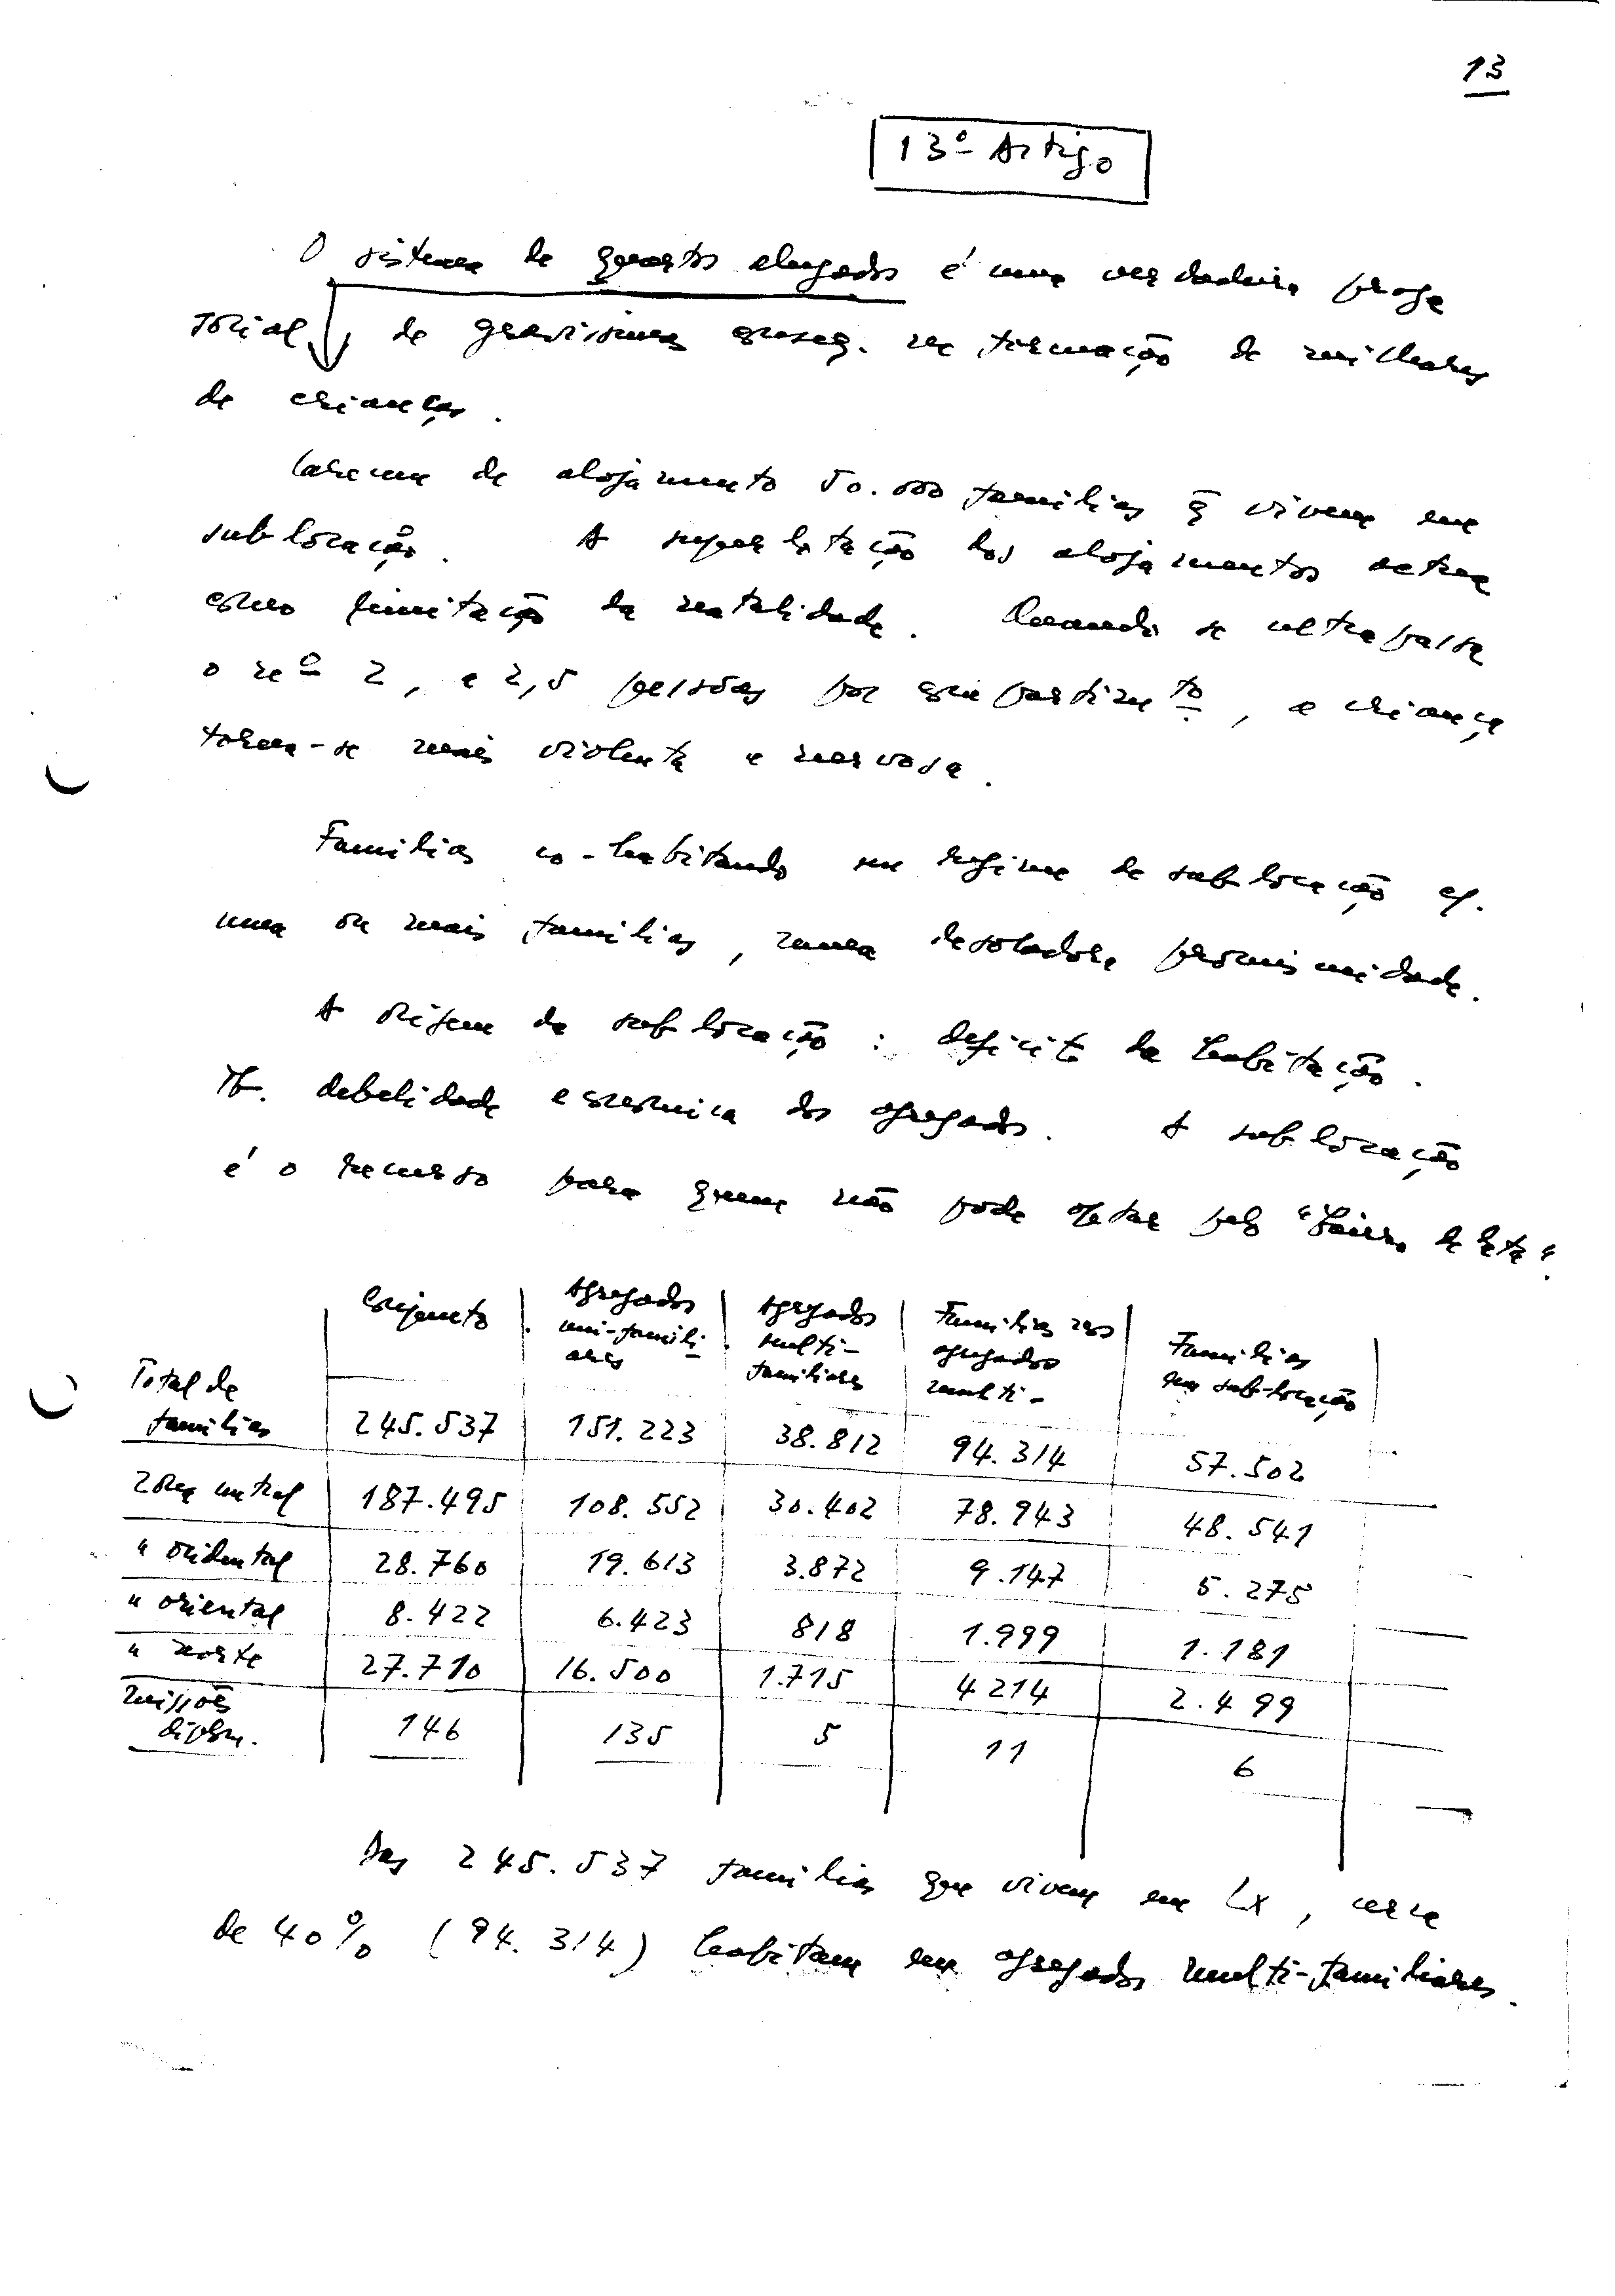 13
13º Artigo
O sistema de quartos alugados é uma verdadeira praga
social, de gravissimas conseq. na formação de milhares
de crianças.
Carecem de alojamento 50.000 familias q̄ vivem em
sublocação. A superlotação dos alojamentos actua
como limitação da natalidade. Quando se ultrapassa
o nº 2, a 2,5 pessoas por compartimtº, a criança
torna-se mais violenta e nervosa.
Familias co-habitando em regime de sublocação c/.
uma ou mais familias, numa desoladora promiscuidade.
A origem da sublocação : deficite da habitação.
Tb. debelidade economica dos agregados. A sublocação
é o recurso para quem não pode optar pelo "bairro de lata".
Conjunto Agregados uni-famili-ares Agregados multi-familiares Familias nos agregados multi- Familias em sub-locação
Total de familias 245.537 151.223 38.812 94.314 57.502
zona central 187.495 108.552 30.402 78.943 48.541
" ocidental 28.760 19.613 3.872 9.147 5.275
" oriental 8.422 6.423 818 1.999 1.181
" norte 27.710 16.500 1.715 4214 2.499
missões diplom. 146 135 5 11 6
Das 245.537 familias que vivem em Lx, cerca
de 40% (94.314) habitam em agregados multi-familiares.